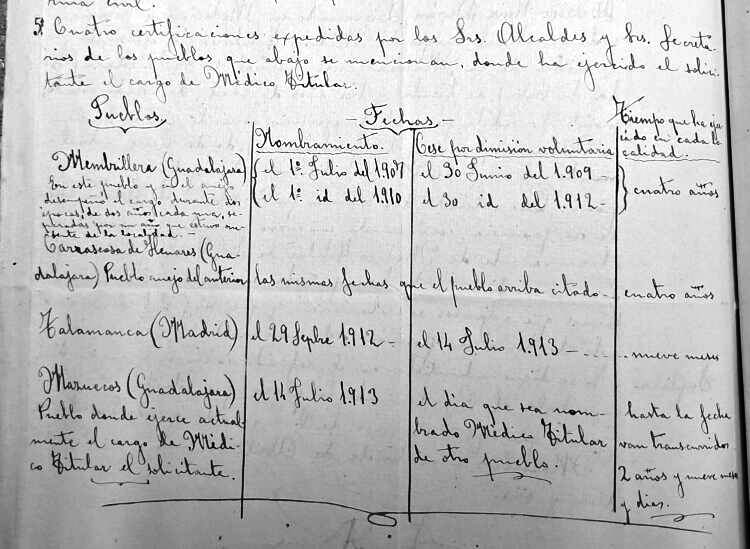 5ª Cuatro certificaciones expedidas por los Srs. Alcaldes y Srs. Secreta-
rios de los pueblos que abajo se mencionan, donde ha ejercido el solici-
tante el cargo de Médico Titular.
Pueblos
- Fechas -
Tiempo que ha eje
cido en cada lo
calidad.
Nombramiento.
Cese por dimisión voluntaria
Membrillera (Guadalajara)
el 1º. Julio del 1907
el 30 Junio del 1.909 -
En este pueblo y en el anejo
desempeñó el cargo durante dos
épocas, de dos años cada una, se-
paradas por un año que estuvo au-
sente de la localidad. -
el 1º. id del 1910
el 30 id del 1.912 -
cuatro años
Carrascosa de Henares (Gua-
dalajara) Pueblo anejo del anterior
las mismas fechas que el pueblo arriba citado -
cuatro años
Talamanca (Madrid)
el 29 Sepbre 1.912 -
el 14 Julio 1.913 -
nueve meses
Mazuecos (Guadalajara)
Pueblo donde ejerce actual-
mente el cargo de Médi-
co Titular el solicitante.
el 14 Julio 1913
el dia que sea nom-
brado Médico Titular
de otro pueblo.
hasta la fecha
van transcurridos
2 años y nueve mese
y dias.